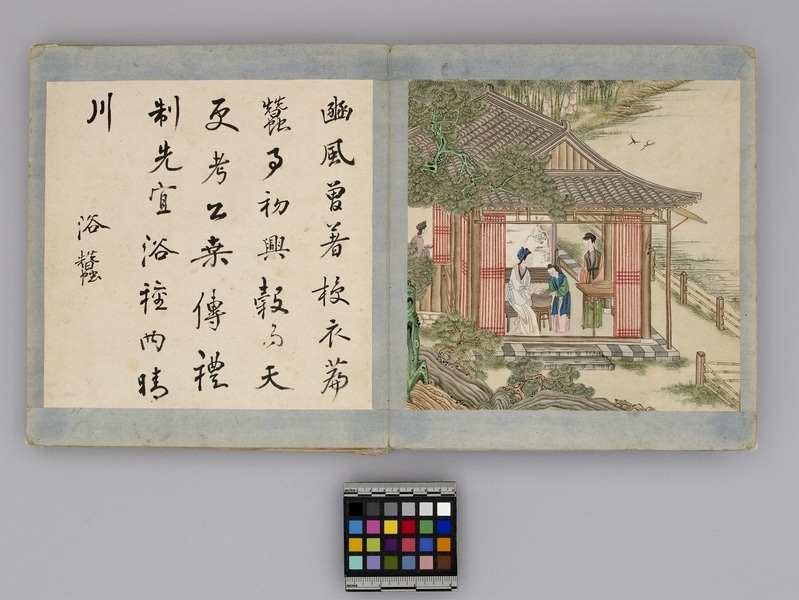 豳風曾著授衣篇
蠶事初興穀雨天
更考公桒傳禮
制先宜浴種向晴
川
浴蠶